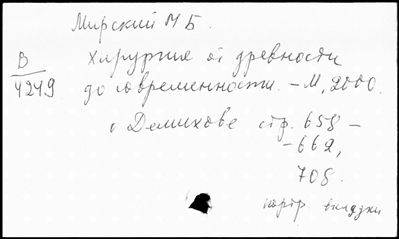 Мирский М Б.
В
4249
Хирургия от древности
до современности. – М, 2000.
о Демихове стр. 658 –
– 662,
708.
портр вкладки